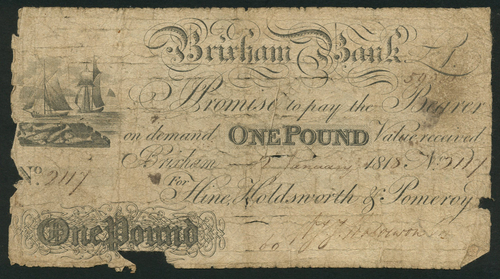 Brixham Bank. £1.
I Promise to pay the Bearer
on demand ONE POUND Value received
Brixham January 1818. No 2117
No 2117
For Hine, Holdsworth & Pomeroy
One Pound